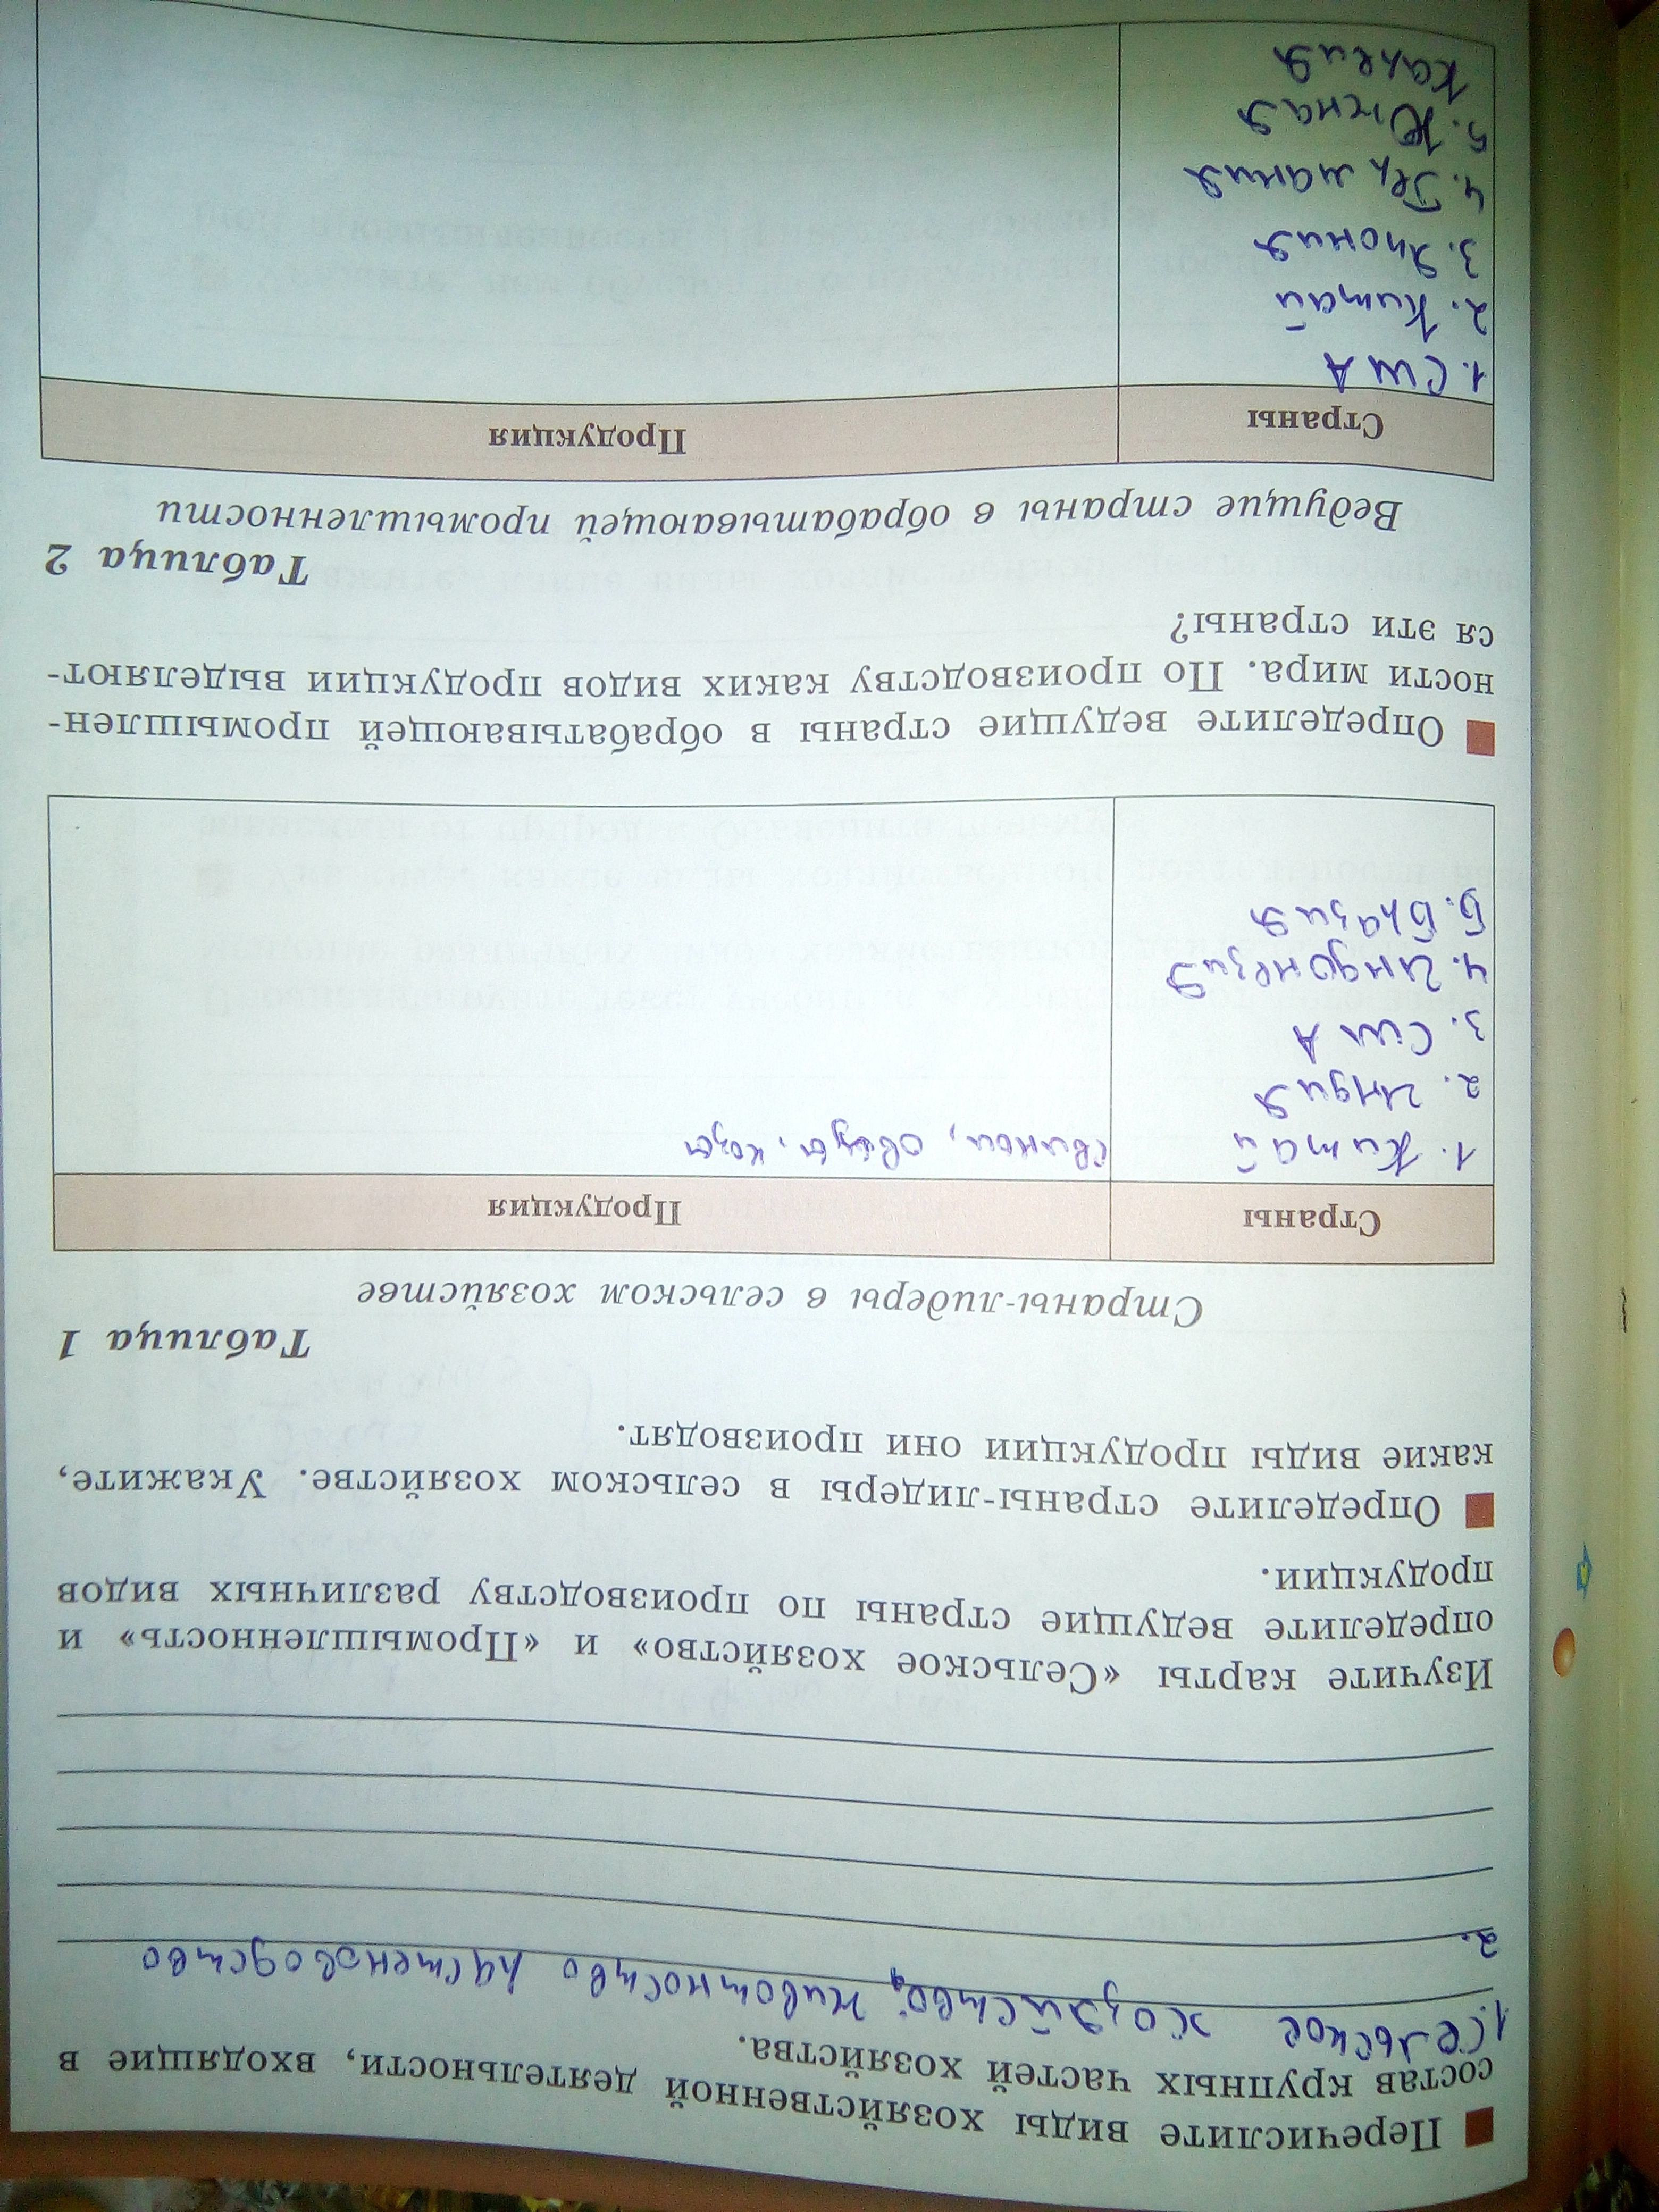 ■ Перечислите виды хозяйственной деятельности, входящие в
состав крупных частей хозяйства.
1. Сельское хозяйство, животноство растеноводство
2.
Изучите карты «Сельское хозяйство» и «Промышленность» и
определите ведущие страны по производству различных видов
продукции.
■ Определите страны-лидеры в сельском хозяйстве. Укажите,
какие виды продукции они производят.
Таблица 1
Страны-лидеры в сельском хозяйстве
Страны Продукция
1. Китай свиньи, овцы, козы
2. Индия
3. США
4. Индонезия
5. Бразия
■ Определите ведущие страны в обрабатывающей промышлен-
ности мира. По производству каких видов продукции выделяют-
ся эти страны?
Таблица 2
Ведущие страны в обрабатывающей промышленности
Страны Продукция
1. США
2. Китай
3. Япония
4. Германия
5. Южная
Калея